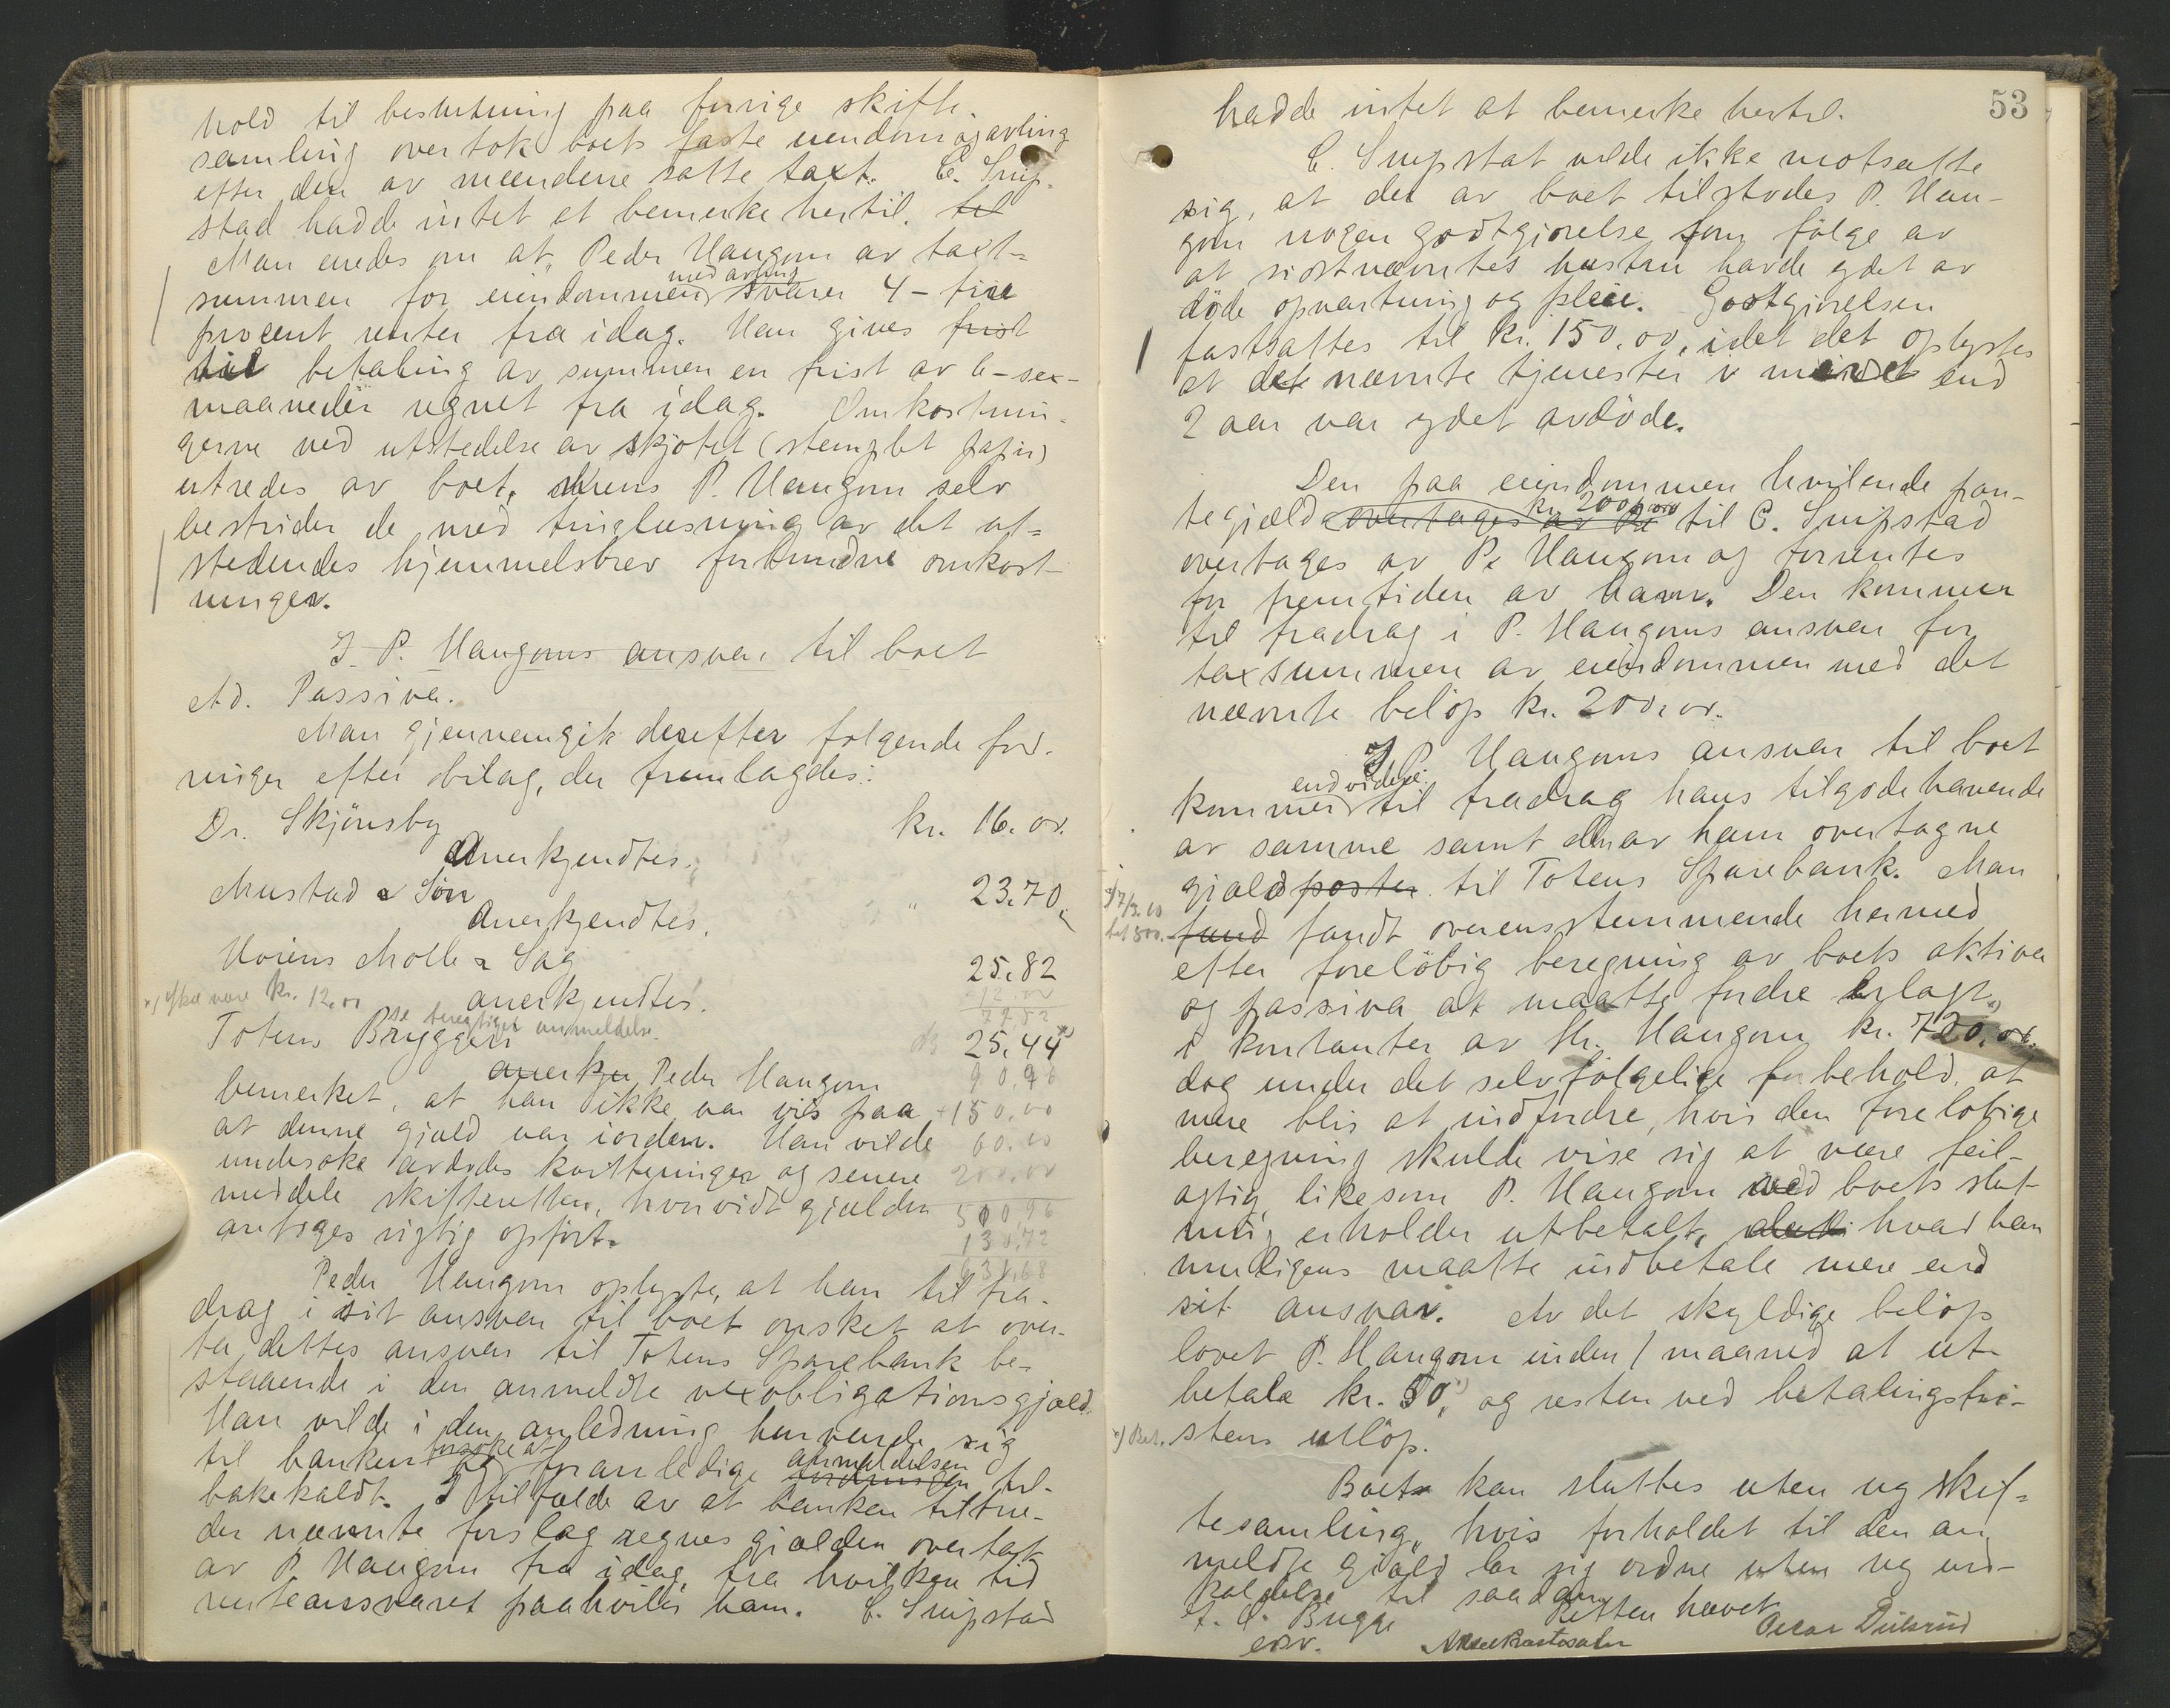 hold til beslutning paa forrige skifte-
samling overtok boets faste eiendom og avling
efter den av mændene satte taxt. C. Snip-
stad hadde intet at bemerke hertil. til
Man enedes om at Peder Haugom av taxt-
med avling
summen for eiendommen svarer 4 - fire
procent renter fra idag. Han gives frist
til betaling av summen en frist av 6 - sex -
maaneder regnet fra idag. Omkostnin-
gerne ved utstedelse av skjøtet (stemplet papir)
utredes av boet, mens P. Haugom selv
bestrider de med tinglæsning av det ut-
stedendes hjemmelsbrev forbundne omkost-
ninger.
I P. Haugoms ansvar til boet
Ad. Passiva.
Man gjennemgik derefter følgende ford-
ringer efter bilag, der fremlagdes:
Dr. Skjønsby kr. 16.00.
Anerkjendtes.
Mustad & Søn " 23.70
Anerkjendtes.
Mølle & Sag 25.82
anerkjendtes.
x) Skal være kr. 12.00
12.00
Totens Bryggeri 25.44 x)
anmeldelse.
anerkjen Peder Haugom
90.96
bemerket, at han ikke var vis paa
+150.00
at denne gjæld var iorden. Han vilde
60.00
undersøke avdødes kvitteringer og senere
200.00
meddele skifteretten, hvorvidt gjælden
500.96
antages rigtig opført.
130.72
631.68
Peder Haugom oplyste, at han til fra-
drag i sit ansvar til boet ønsket at over-
ta dettes ansvar til Totens Sparebank be-
staaende i den anmeldte vexobligationsgjæld.
Han vilde i den anledning henvende sig
forsøke at anmeldelsen
til banken og foranledige fordringen til-
bakekaldt. I tilfælde av at banken tiltræ-
der nævnte forslag regnes gjælden overtat
av P. Haugom fra idag, fra hvilken tid
renteansvaret paahviler ham. C. Snipstad
53
hadde intet at bemerke hertil.
C. Snipstat vilde ikke motsætte
sig, at det av boet tilstodes P. Hau-
gom nogen godtgjørelse som følge av
at sidstnævntes hustru havde ydet av
døde opvartning og pleie. Godtgjørelsen
fastsattes til kr. 150.00, idet det oplystes
at det nævnte tjenester i mindst end
2 aar var ydet avdøde.
Den paa eiendommen hvilende pan-
kr. 200.00
tegjæld overtages av Pe til C. Snipstad
overtages av P. Haugom og forrentes
for fremtiden av ham. Den kommer
til fradrag i P. Haugoms ansvar for
taxsummen av eiendommen med det
nævnte beløp kr. 200.00.
I P. Haugoms ansvar til boet
endvidere
kommer til fradrag hans tilgodehavende
av samme samt den av ham overtagne
gjæld poster til Totens Sparebank. Man
fand fandt overensstemmende hermed
efter foreløbig beregning av boets aktiva
og passiva at maatte fordre erlagt
i kontanter av Hr. Haugom kr. 720.00.
dog under det selvfølgelige forbehold, at
mere blir at indfordre, hvis den foreløbige
beregning skulde vise sig at være feil-
agtig, likesom P. Haugom ved boets slut-
ning erholder utbetalt, hvad han
muligens maatte indbetale mere end
sit ansvar. Av det skyldige beløp
lovet P. Haugom inden 1 maaned at ut-
betale kr. 50, x) og resten ved betalingsfri-
x) Bet.
stens utløp.
Boet kan sluttes uten ny skif-
tesamling, hvis forholdet til den an-
meldte gjæld lar sig ordne uten ny ind-
kaldelse til saadan.
Retten hævet
Bugge
Oscar Dulsrud